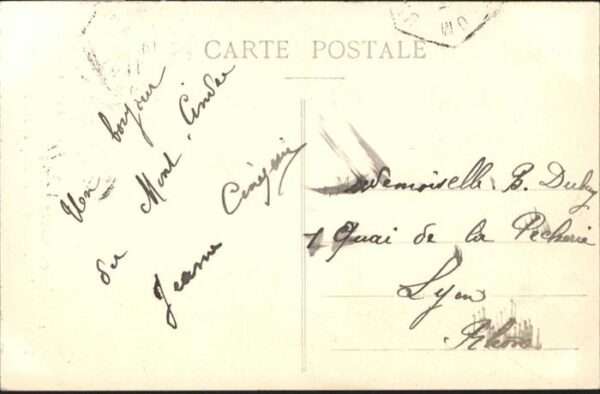 CARTE POSTALE
Un bonjour
du Mont Cindre
Jeanne
Mademoiselle B. Duby
1 Quai de la Pecherie
Lyon
Rhône